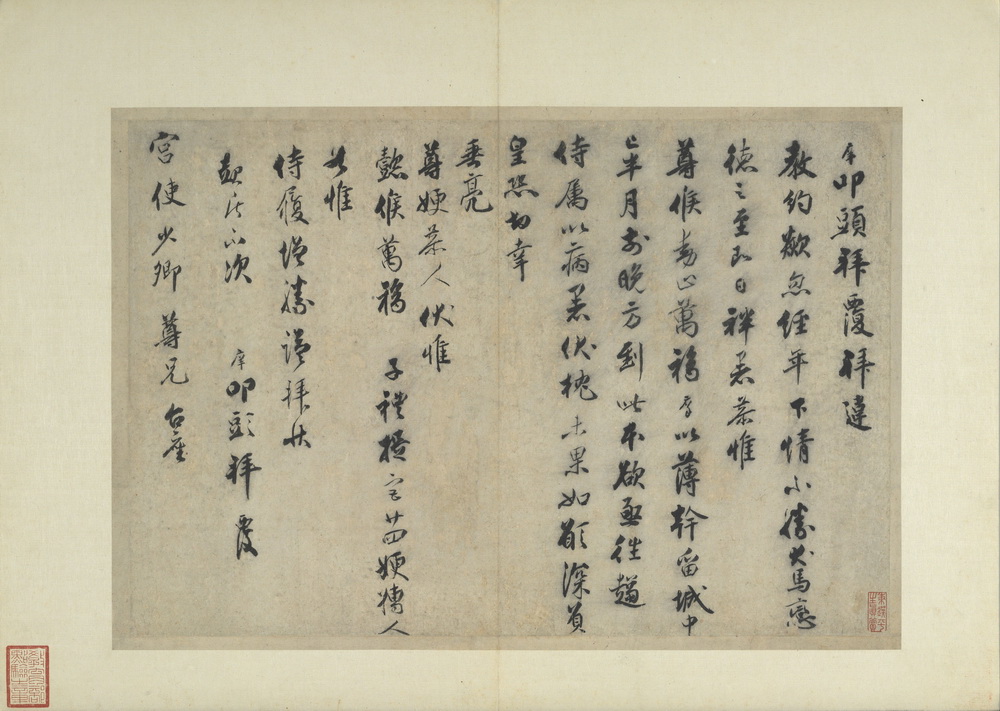 序叩頭拜覆拜違
教約歘忽經年下情不勝犬馬戀
德之至即日祥暑恭惟
尊候動止萬福序以薄幹留城中
已半月前晚方到此本欲亟往趨
侍屬以病暑伏枕未果如願深負
皇恐切幸
垂亮
尊嫂恭人伏惟
懿候萬福 子禮提宮廿四嫂孺人
共惟
侍履增勝謹拜狀
起居不次 序叩頭拜覆
宮使少卿尊兄台座